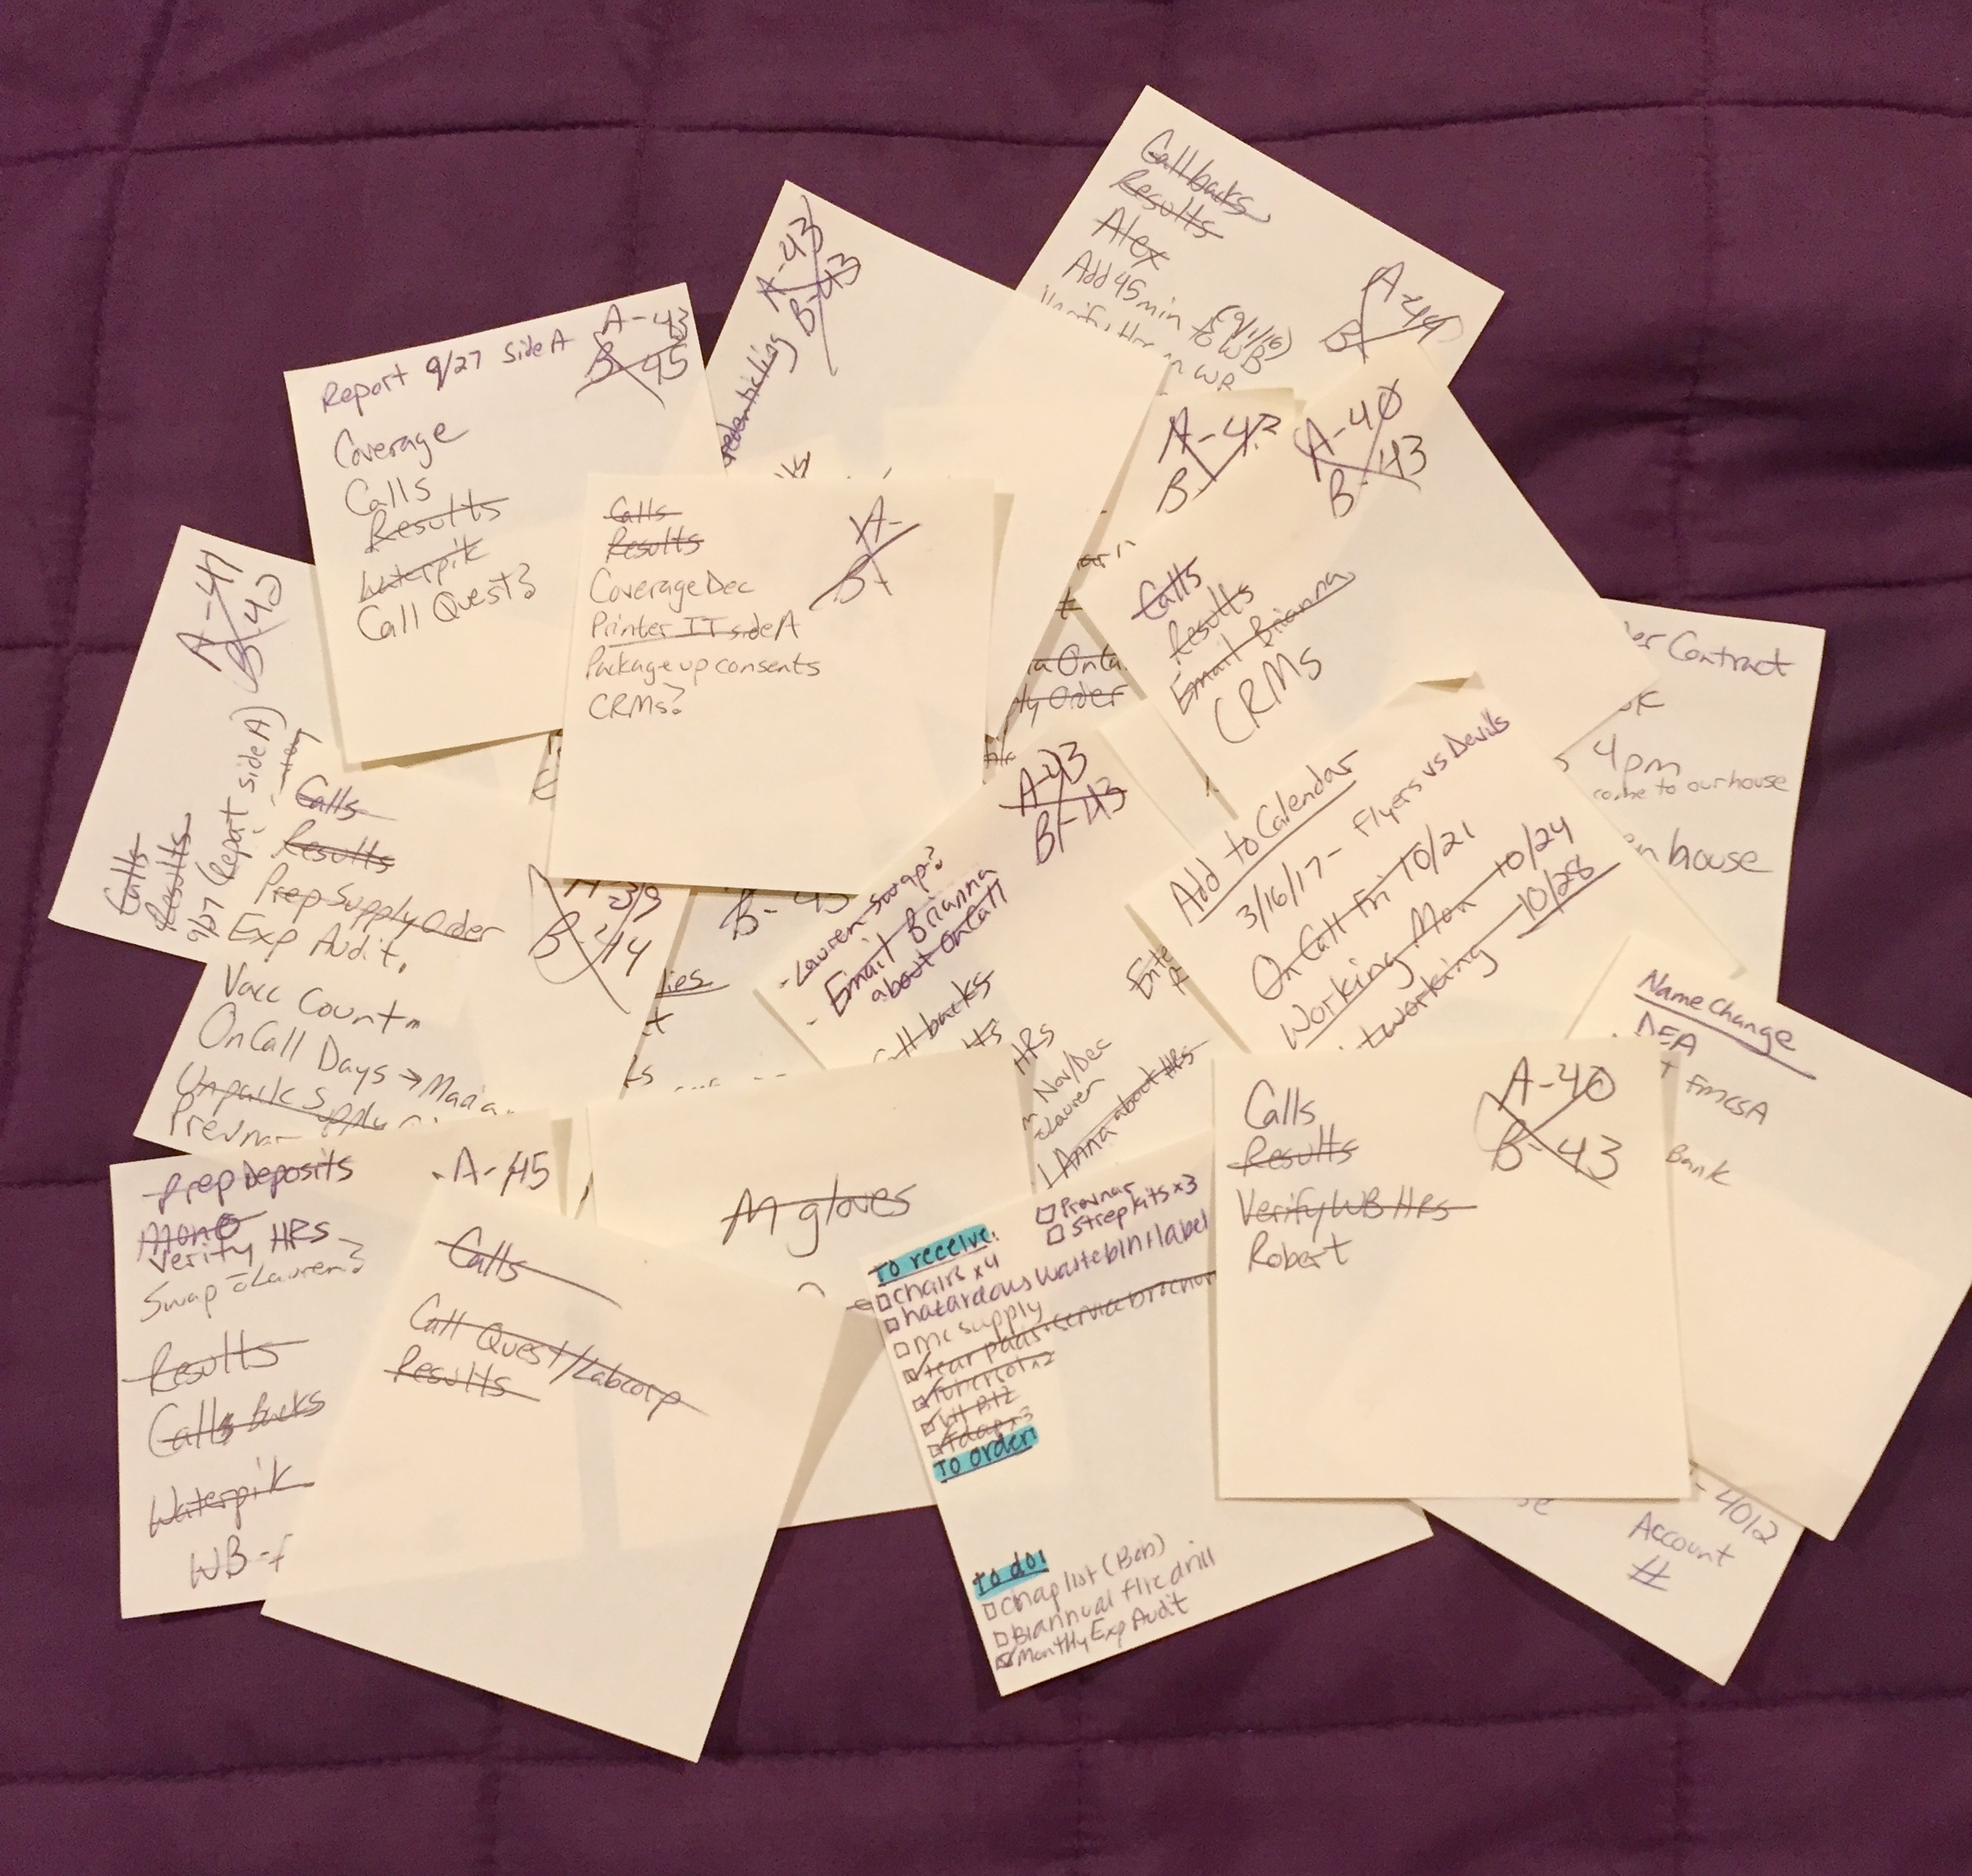 Callbacks
Results
Alex
Add 45min to WB
(9/1/16)
A-44
B
A-43
B-43
Report 9/27 side A
A-43
B-45
Coverage
Calls
Results
Waterpik
Call Quest?
Calls
Results
Coverage Dec
Printer IT side A
Package up consents
CRMs?
A-
B-
A-42
B-
A-40
B-43
Calls
Results
Email Brianna
CRMs
Contract
4pm
come to our house
house
A-41
B-40
Calls
Results
9/27 (Report side A)
Calls
Results
Prep Supply Order
Exp Audit
Vacc Count
OnCall Days → Maria
Unpack Supply
Prevnar
A-39
B-44
B-43
A-43
B-43
- Lauren Swap?
- Email Brianna
about OnCall
Call backs
HRS
Nov/Dec
Lauren
Anna about HRS
Add to Calendar
3/16/17 - Flyers vs Devils
On Call Fri 10/21
Working Mon 10/24
working 10/28
Name Change
DEA
fmcsA
Bank
Prep Deposits
Mono
Verify HRS
Swap Lauren?
Results
Calls Backs
Waterpik
WB-
A-45
Calls
Call Quest/Labcorp
Results
M gloves
To receive:
Prevnar
Strep kits x3
chairs x4
hazardous waste bin + label
mc supply
tear pads
Tdap x3
To order:
To do:
chap list (Bob)
Biannual fire drill
Monthly Exp Audit
Calls
Results
Verify WB HRS
Robert
A-40
B-43
- 4012
Account
#